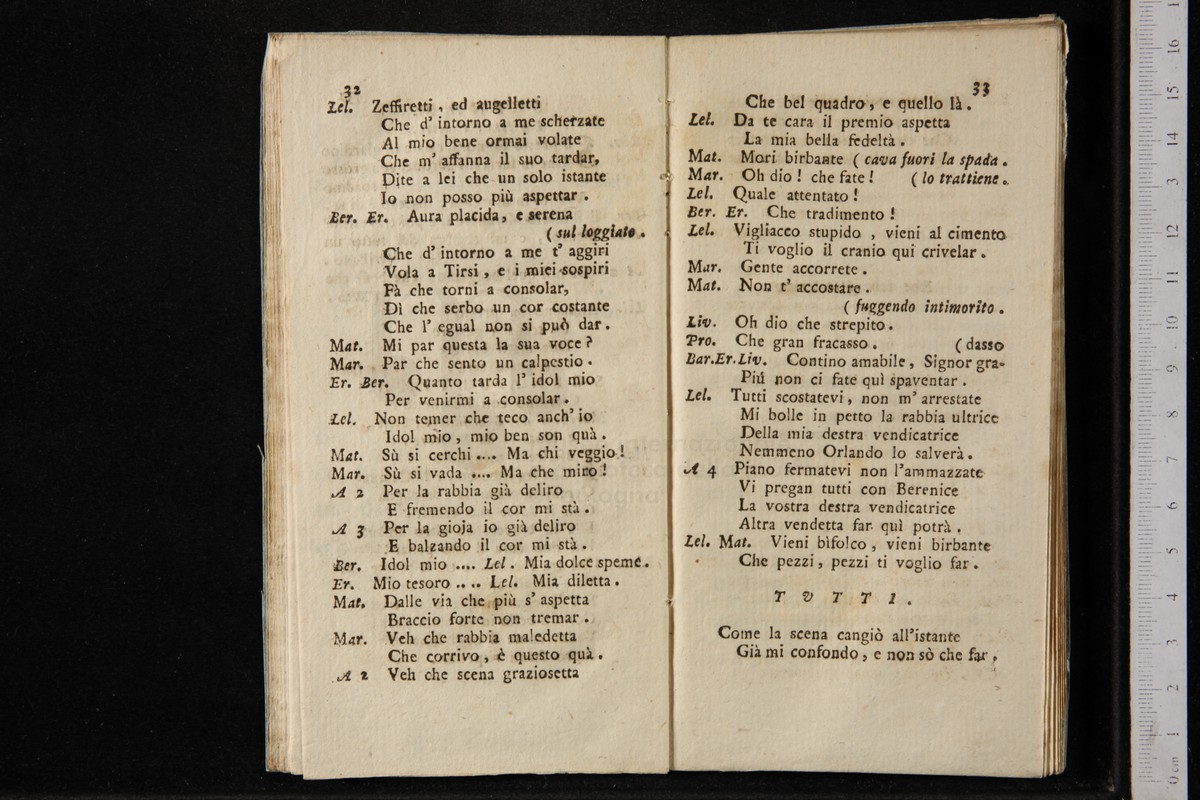 32
Lel. Zeffiretti, ed augelletti
Che d' intorno a me scherzate
Al mio bene ormai volate
Che m' affanna il suo tardar,
Dite a lei che un solo istante
Io non posso più aspettar.
Ber. Er. Aura placida, e serena
( sul loggiato.
Che d' intorno a me t' aggiri
Vola a Tirsi, e i miei sospiri
Fà che torni a consolar,
Dì che serbo un cor costante
Che l' egual non si può dar.
Mat. Mi par questa la sua voce?
Mar. Par che sento un calpestio.
Er. Ber. Quanto tarda l' idol mio
Per venirmi a consolar.
Lel. Non temer che teco anch' io
Idol mio, mio ben son quà.
Mat. Sù si cerchi.... Ma chi veggio!
Mar. Sù si vada .... Ma che miro!
A 2 Per la rabbia già deliro
E fremendo il cor mi stà.
A 3 Per la gioja io già deliro
E balzando il cor mi stà.
Ber. Idol mio .... Lel. Mia dolce speme.
Er. Mio tesoro .... Lel. Mia diletta.
Mat. Dalle via che più s' aspetta
Braccio forte non tremar.
Mar. Veh che rabbia maledetta
Che corrivo, è questo quà.
A 2 Veh che scena graziosetta
33
Che bel quadro, e quello là.
Lel. Da te cara il premio aspetta
La mia bella fedeltà.
Mat. Mori birbante ( cava fuori la spada.
Mar. Oh dio! che fate! ( lo trattiene.
Lel. Quale attentato!
Ber. Er. Che tradimento!
Lel. Vigliacco stupido, vieni al cimento
Ti voglio il cranio qui crivelar.
Mar. Gente accorrete.
Mat. Non t' accostare.
( fuggendo intimorito.
Liv. Oh dio che strepito.
Pro. Che gran fracasso. ( dasso
Bar.Er.Liv. Contino amabile, Signor gra-
Più non ci fate quì spaventar.
Lel. Tutti scostatevi, non m' arrestate
Mi bolle in petto la rabbia ultrice
Della mia destra vendicatrice
Nemmeno Orlando lo salverà.
A 4 Piano fermatevi non l'ammazzate
Vi pregan tutti con Berenice
La vostra destra vendicatrice
Altra vendetta far quì potrà.
Lel. Mat. Vieni bifolco, vieni birbante
Che pezzi, pezzi ti voglio far.
T V T T I.
Come la scena cangiò all'istante
Già mi confondo, e non sò che far,